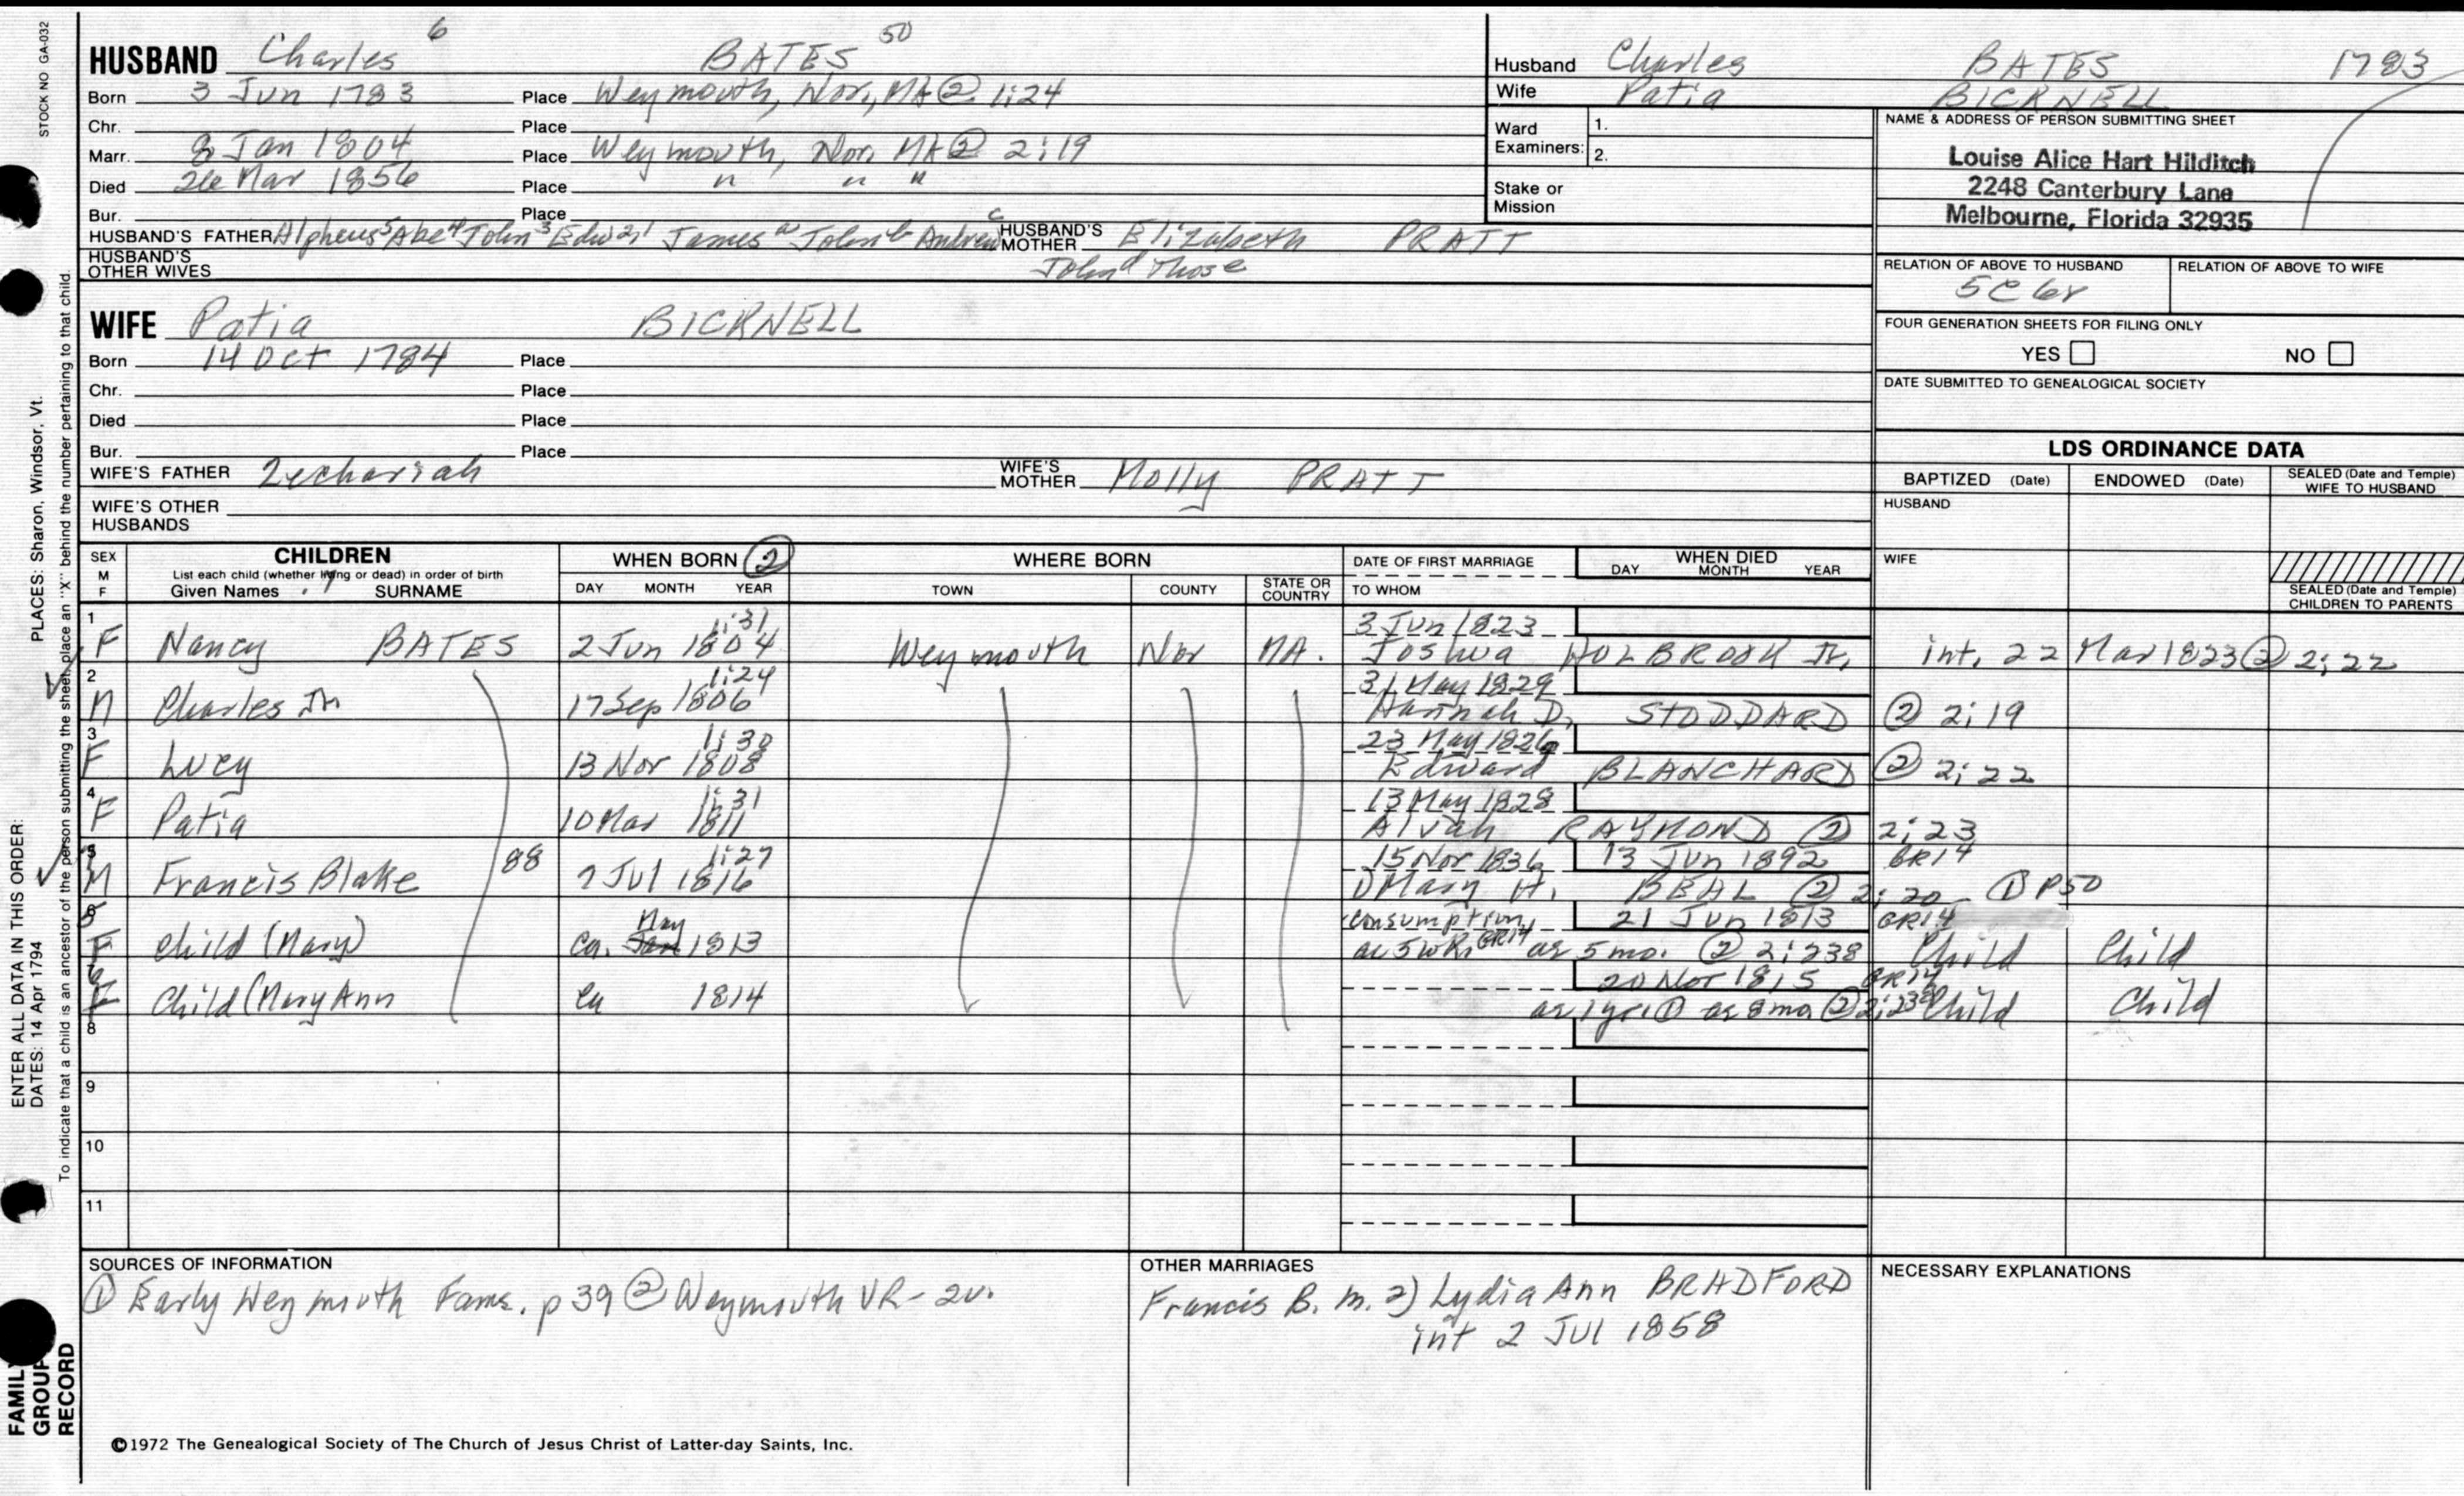 STOCK NO GA-032
HUSBAND Charles 6 BATES 50
Born 3 Jun 1783 Place Weymouth, Nor, MA @ 1:24
Chr. Place
Marr. 8 Jan 1804 Place Weymouth, Nor, MA ② 2:19
Died 26 Mar 1856 Place " " "
Bur. Place
HUSBAND'S FATHER Alpheus 5 Abe 4 John 3 Edw 2 1 James a John b Andrew c HUSBAND'S MOTHER Elizabeth PRATT
HUSBAND'S OTHER WIVES John d Thos e
Husband Charles BATES 1783
Wife Patia BICKNELL
Ward Examiners: 1.
2.
Stake or Mission
NAME & ADDRESS OF PERSON SUBMITTING SHEET
Louise Alice Hart Hilditch
2248 Canterbury Lane
Melbourne, Florida 32935
RELATION OF ABOVE TO HUSBAND RELATION OF ABOVE TO WIFE
5C6r
FOUR GENERATION SHEETS FOR FILING ONLY
YES NO
DATE SUBMITTED TO GENEALOGICAL SOCIETY
WIFE Patia BICKNELL
Born 14 Oct 1784 Place
Chr. Place
Died Place
Bur. Place
WIFE'S FATHER Zechariah WIFE'S MOTHER Molly PRATT
WIFE'S OTHER HUSBANDS
LDS ORDINANCE DATA
BAPTIZED (Date) ENDOWED (Date) SEALED (Date and Temple) WIFE TO HUSBAND
HUSBAND
WIFE
SEALED (Date and Temple) CHILDREN TO PARENTS
SEX M F CHILDREN List each child (whether living or dead) in order of birth Given Names SURNAME
WHEN BORN ② DAY MONTH YEAR
WHERE BORN TOWN COUNTY STATE OR COUNTRY
DATE OF FIRST MARRIAGE TO WHOM
WHEN DIED DAY MONTH YEAR
1 1:31 3 Jun 1823
F Nancy BATES 2 Jun 1804 Weymouth Nor MA. Joshua HOLBROOK Jr. int. 22 Mar 1823 ② 2:22
2 1:24 31 May 1829
M Charles Jr 17 Sep 1806 Hannah D. STODDARD ② 2:19
3 1:30 23 May 1826
F Lucy 13 Nov 1808 Edward BLANCHARD ② 2:22
4 1:31 13 May 1828
F Patia 10 Mar 1811 Alvah RAYMOND ② 2:23
5 1:27 15 Nov 1836 13 Jun 1892 GR14
M Francis Blake 88 7 Jul 1816 Mary H. BEAL ② 2:20 ① P50
6 May consumption, 21 Jun 1813 GR14
F Child (Mary) Ca. Jan 1813 ae 5 wk, GR14 ae 5 mo. ② 2:238 Child Child
7 20 Nov 1815 GR14
F Child (Mary Ann Ca 1814 ae 1 yr ① ae 8 mo ② 2:238 Child Child
8
9
10
11
SOURCES OF INFORMATION
① Early Weymouth Fams. p 39 ② Weymouth VR - 2v.
OTHER MARRIAGES
Francis B. m. 2) Lydia Ann BRADFORD
int 2 Jul 1858
NECESSARY EXPLANATIONS
ENTER ALL DATA IN THIS ORDER:
DATES: 14 Apr 1794 PLACES: Sharon, Windsor, Vt.
To indicate that a child is an ancestor of the person submitting the sheet, place an "X" behind the number pertaining to that child.
FAMILY GROUP RECORD
©1972 The Genealogical Society of The Church of Jesus Christ of Latter-day Saints, Inc.